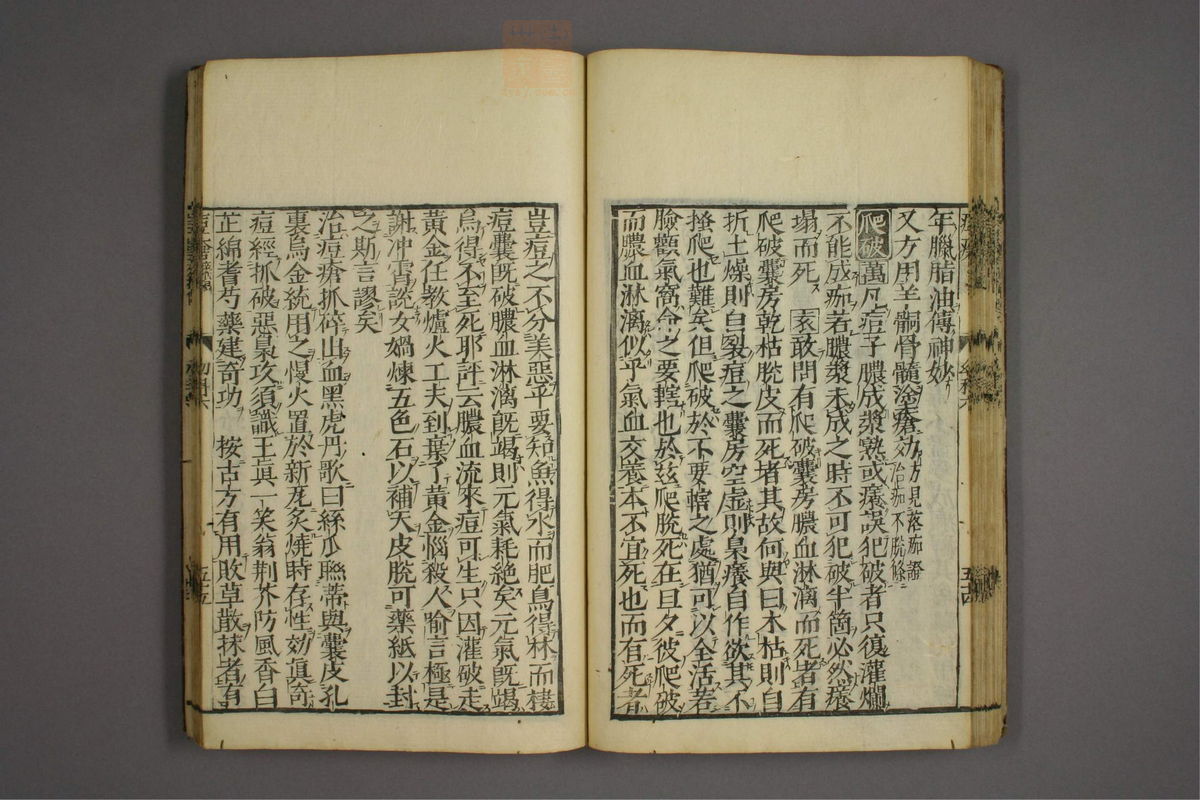 年臘脂油傅神妙
又方用羊䯊骨髓塗瘡効 方見落痂證治痂不脫條
爬破 萬凡痘子膿成漿熟或癢誤犯破者只復灌爛
不能成痂若膿漿未成之時不可犯破半箇必然癢
塌而死 玄敢問有爬破囊房膿血淋漓而死者有
爬破囊房乾枯脫皮而死者其故何與曰木枯則自
折土燥則自裂痘之囊房空虛則梟癢自作欲其不
搔爬也難矣但爬破於不要轄之處猶可以全活若
臉顴氣窩命之要轄也於茲爬脫死在旦夕彼爬破
而膿血淋漓似乎氣血交養本不宜死也而有死者
豈痘之不分美惡乎要知魚得水而肥鳥得林而棲
痘囊既破膿血淋漓既竭則元氣耗絶矣元氣既竭
烏得不至死耶評云膿血流來痘可生只因灌破走
黃金任教爐火工夫到棄了黃金惱殺人喻言極是
謝冲霄說女媧煉五色石以補天皮脫可藥紙以封
之斯言謬矣
治痘瘡抓碎出血黑虎丹歌曰絲瓜聮蒂與囊皮孔
裏烏金統用之慢火置於新瓦炙燒時存性効眞奇
痘經抓破惡梟攻須識王眞一笑翁荆芥防風香白
芷綿耆芍藥建奇功 按古方有用敗草散抹者有
五十四
五十五